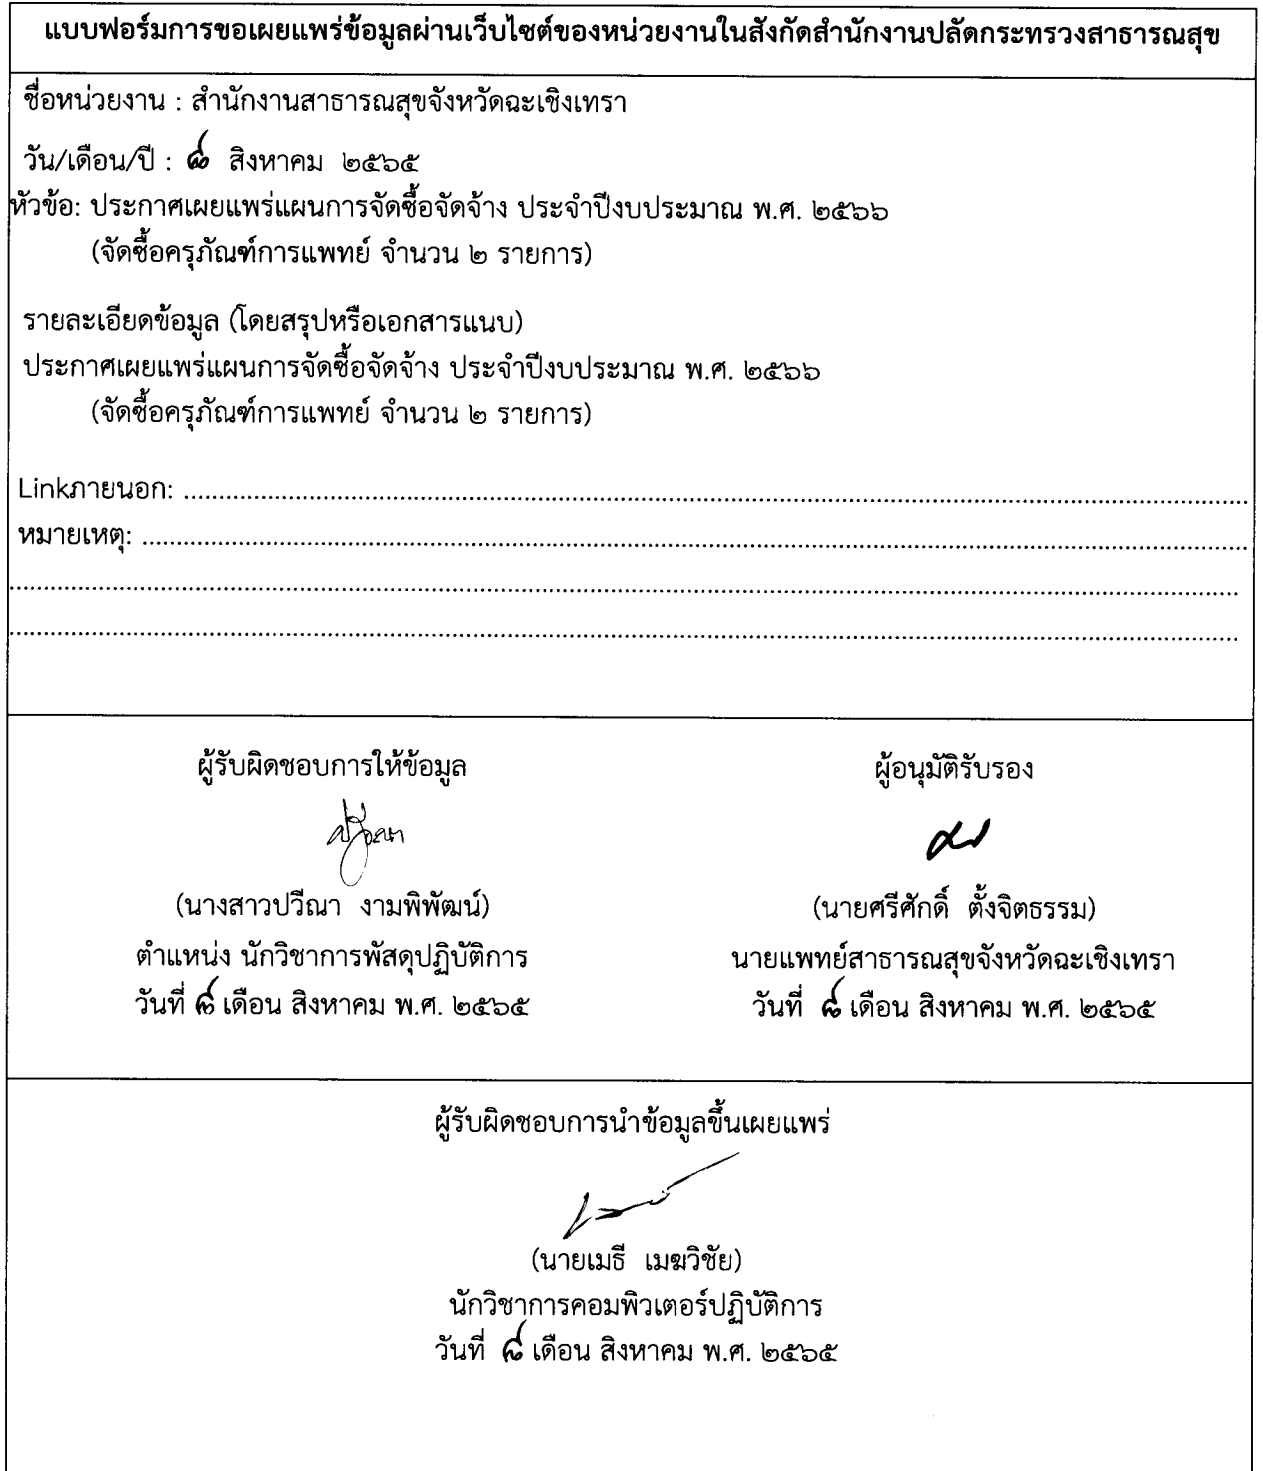 แบบฟอร์มการขอเผยแพร่ข้อมูลผ่านเว็บไซต์ของหน่วยงานในสังกัดสำนักงานปลัดกระทรวงสาธารณสุข
ชื่อหน่วยงาน : สำนักงานสาธารณสุขจังหวัดฉะเชิงเทรา
วัน/เดือน/ปี : ๘ สิงหาคม ๒๕๖๕
หัวข้อ: ประกาศเผยแพร่แผนการจัดซื้อจัดจ้าง ประจำปีงบประมาณ พ.ศ. ๒๕๖๖
(จัดซื้อครุภัณฑ์การแพทย์ จำนวน ๒ รายการ)
รายละเอียดข้อมูล (โดยสรุปหรือเอกสารแนบ)
ประกาศเผยแพร่แผนการจัดซื้อจัดจ้าง ประจำปีงบประมาณ พ.ศ. ๒๕๖๖
(จัดซื้อครุภัณฑ์การแพทย์ จำนวน ๒ รายการ)
Linkภายนอก:
หมายเหตุ:
ผู้รับผิดชอบการให้ข้อมูล
ปวีณา
(นางสาวปวีณา งามพิพัฒน์)
ตำแหน่ง นักวิชาการพัสดุปฏิบัติการ
วันที่ ๘ เดือน สิงหาคม พ.ศ. ๒๕๖๕
ผู้อนุมัติรับรอง
(นายศรีศักดิ์ ตั้งจิตธรรม)
นายแพทย์สาธารณสุขจังหวัดฉะเชิงเทรา
วันที่ ๘ เดือน สิงหาคม พ.ศ. ๒๕๖๕
ผู้รับผิดชอบการนำข้อมูลขึ้นเผยแพร่
(นายเมธี เมฆวิชัย)
นักวิชาการคอมพิวเตอร์ปฏิบัติการ
วันที่ ๘ เดือน สิงหาคม พ.ศ. ๒๕๖๕